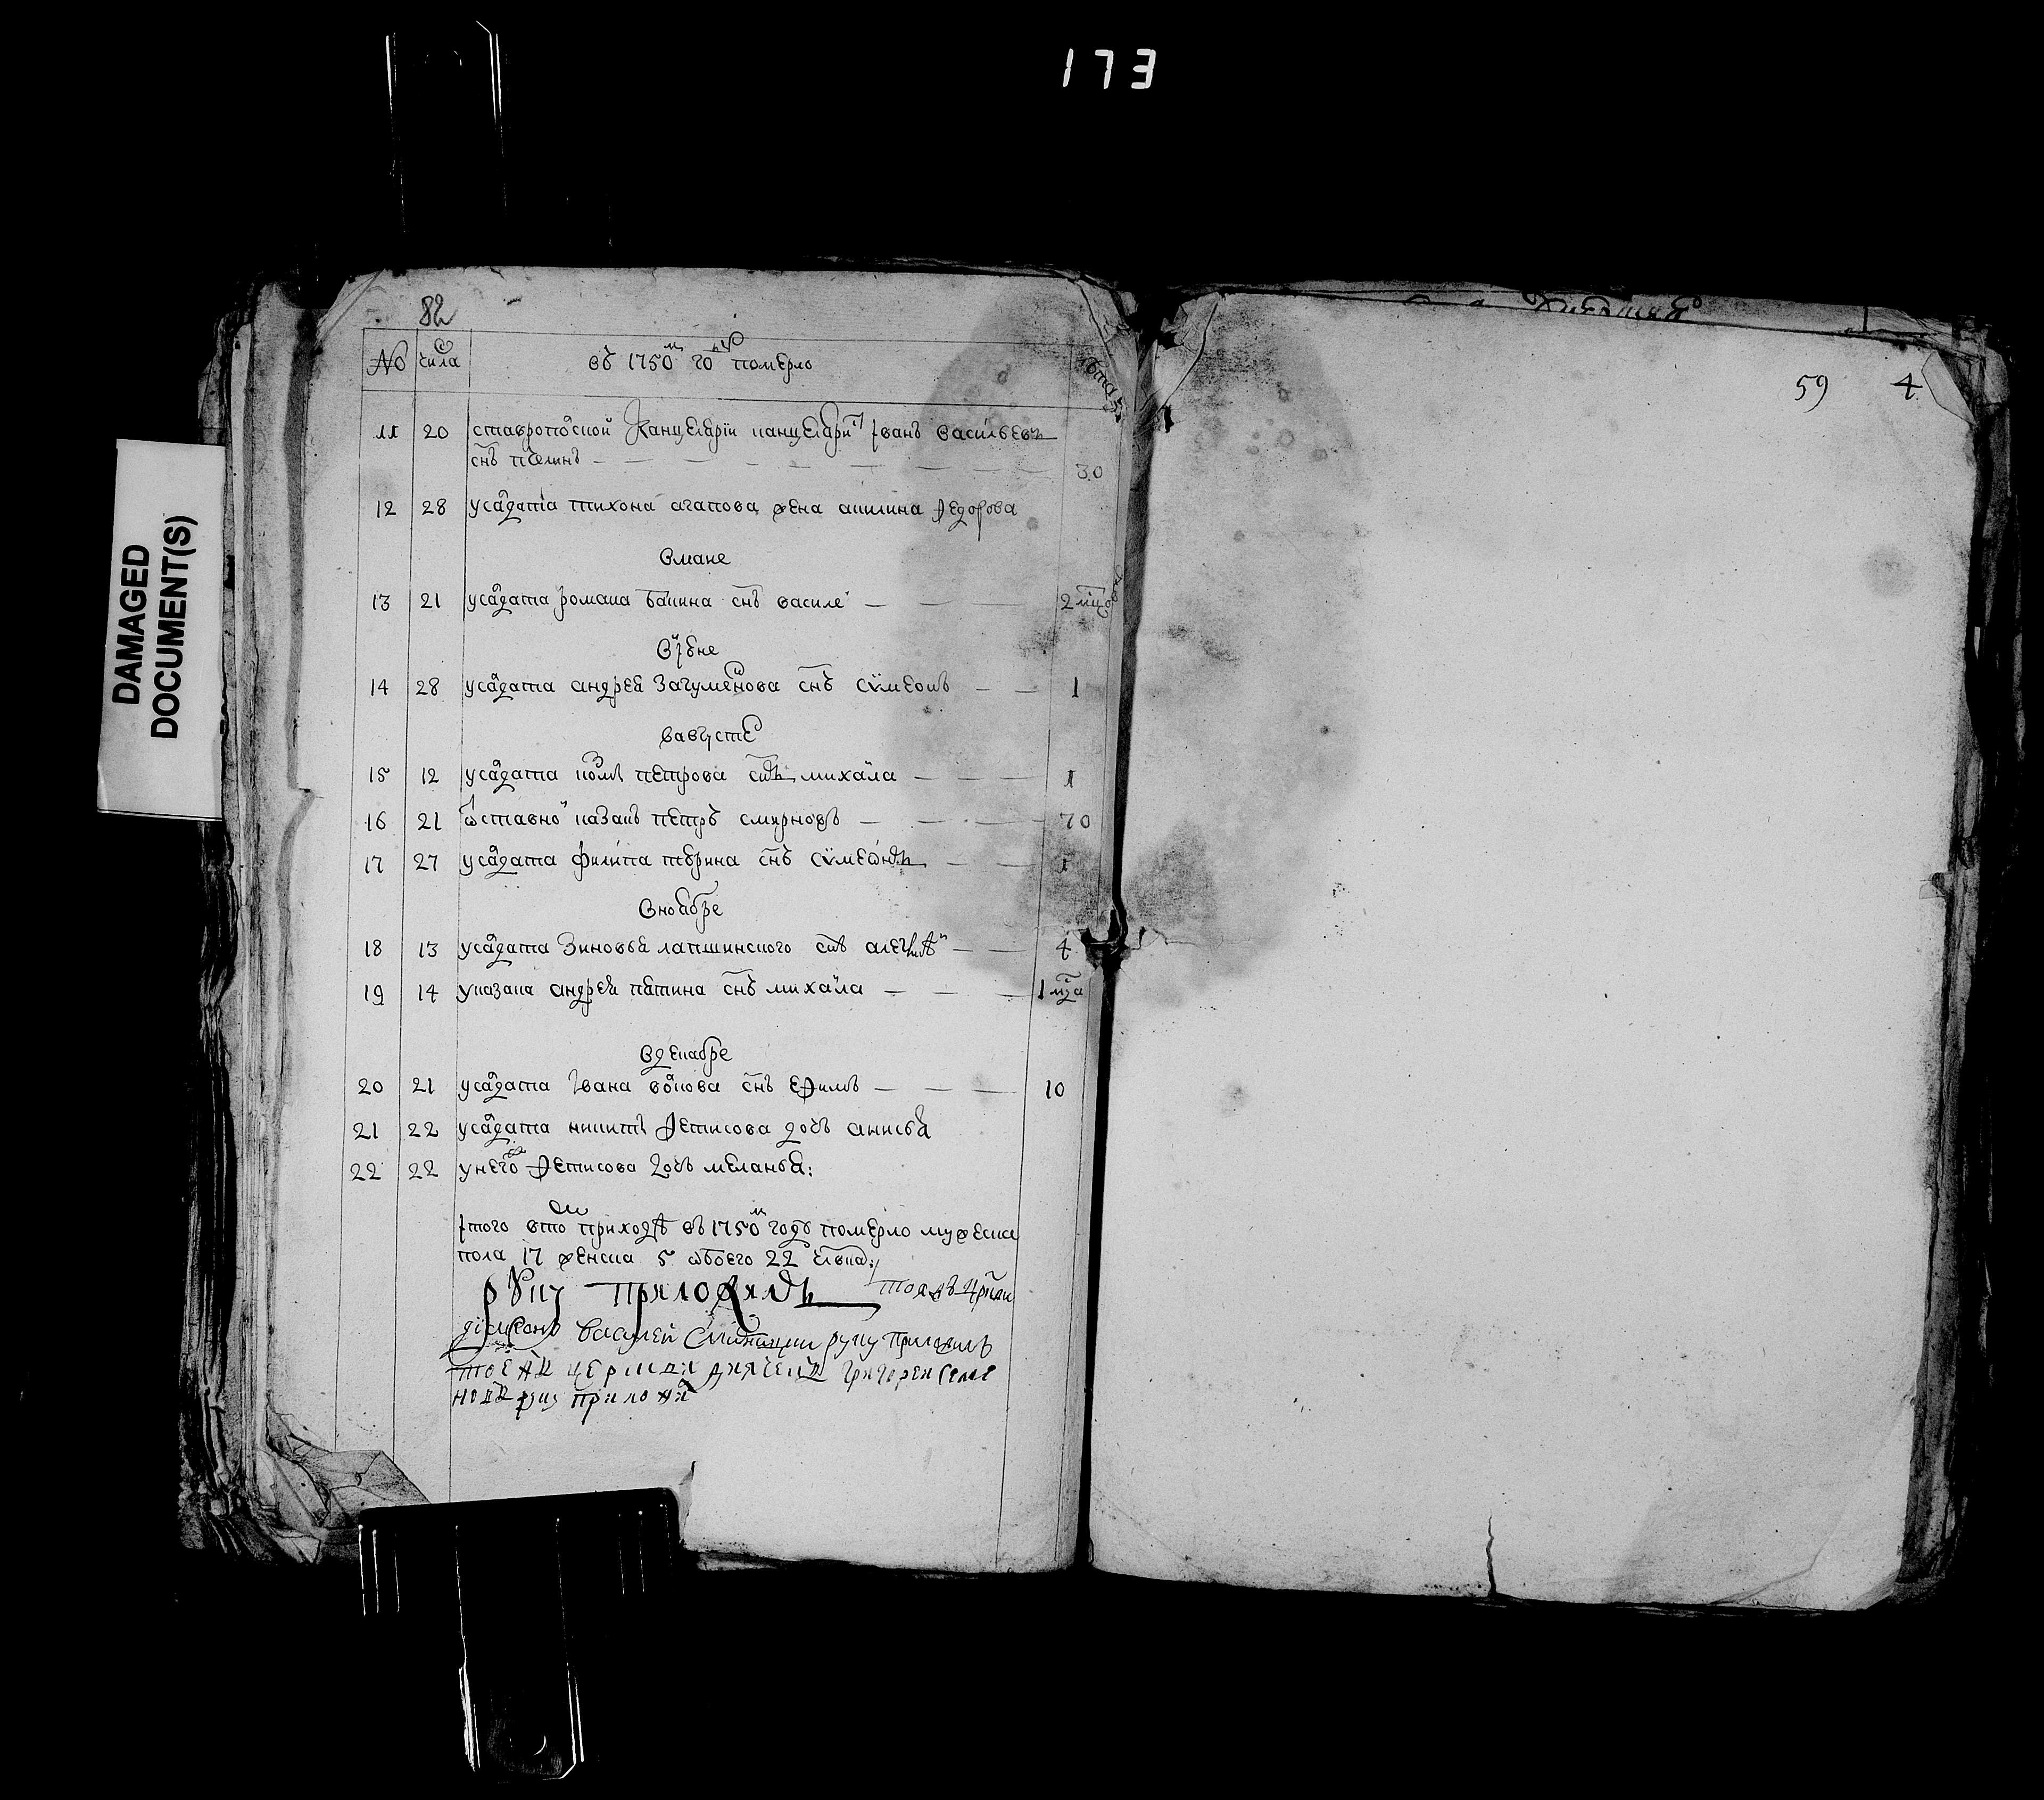 173
DAMAGED
DOCUMENT(S)
82
59 4
№ числа въ 1750м году померло
11 20 ставропоской канцеляріи канцелярис Іванъ васильевъ
снъ пчелинъ 30
12 28 усалдата тихона агапова жена акилина федорова
Вмаие
13 21 усалдата романа бакина снъ василей 2
Віюне
14 28 усалдата андрея загуменнова снъ сѵмеонъ 1
Вавгусте
15 12 усалдата козмы петрова снъ михаила 1
16 21 ѿставной казакъ петръ смирновъ 70
17 27 усалдата филипа тюрина снъ сѵмеѡнъ 1
Вноябре
18 13 усалдата зиновья лапшинского снъ алеѯѣй 4
19 14 указака андрея пятина снъ михаила 1 мца
Вдекабре
20 21 усалдата Івана волкова снъ ефимъ 10
21 22 усалдата никиты фетисова дочь анисья
22 22 унегожъ фетисова дочь меланья:
Ітого втом приходѣ въ 1750м году померло мужеска
пола 17 женска 5 ѡбоего 22 члвка:
руку приложилъ тояжъ цркви
діаконъ василей руку приложилъ
тоежъ церкви дьячекъ григореи семе
новъ руку приложил